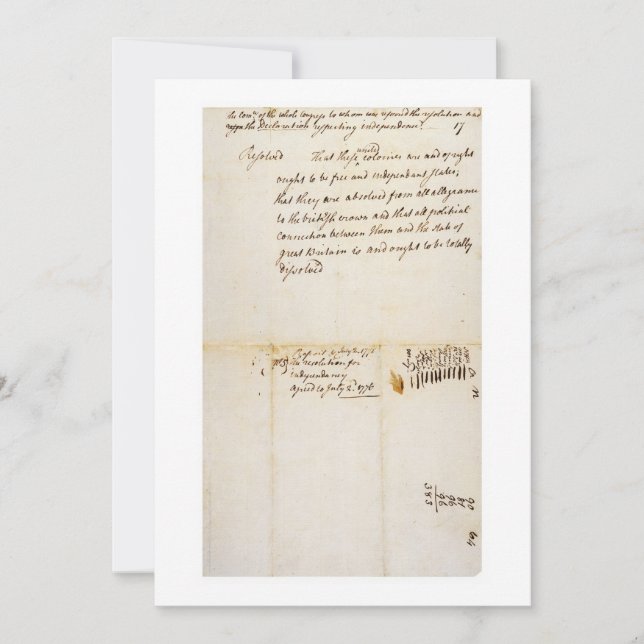 The Com.ee of the whole Congress to whom was referred the resolution and
the Declaration respecting independence. — 17
Resolved That these united colonies are and of right
ought to be free and independant states;
that they are absolved from all allegiance
to the british crown and that all political
connection between them and the state of
great Britain is and ought to be totally
dissolved
Report July 2. 1776
The resolution for
independancy
agreed to July 2.d 1776
O N
90
81
96
96
383
64